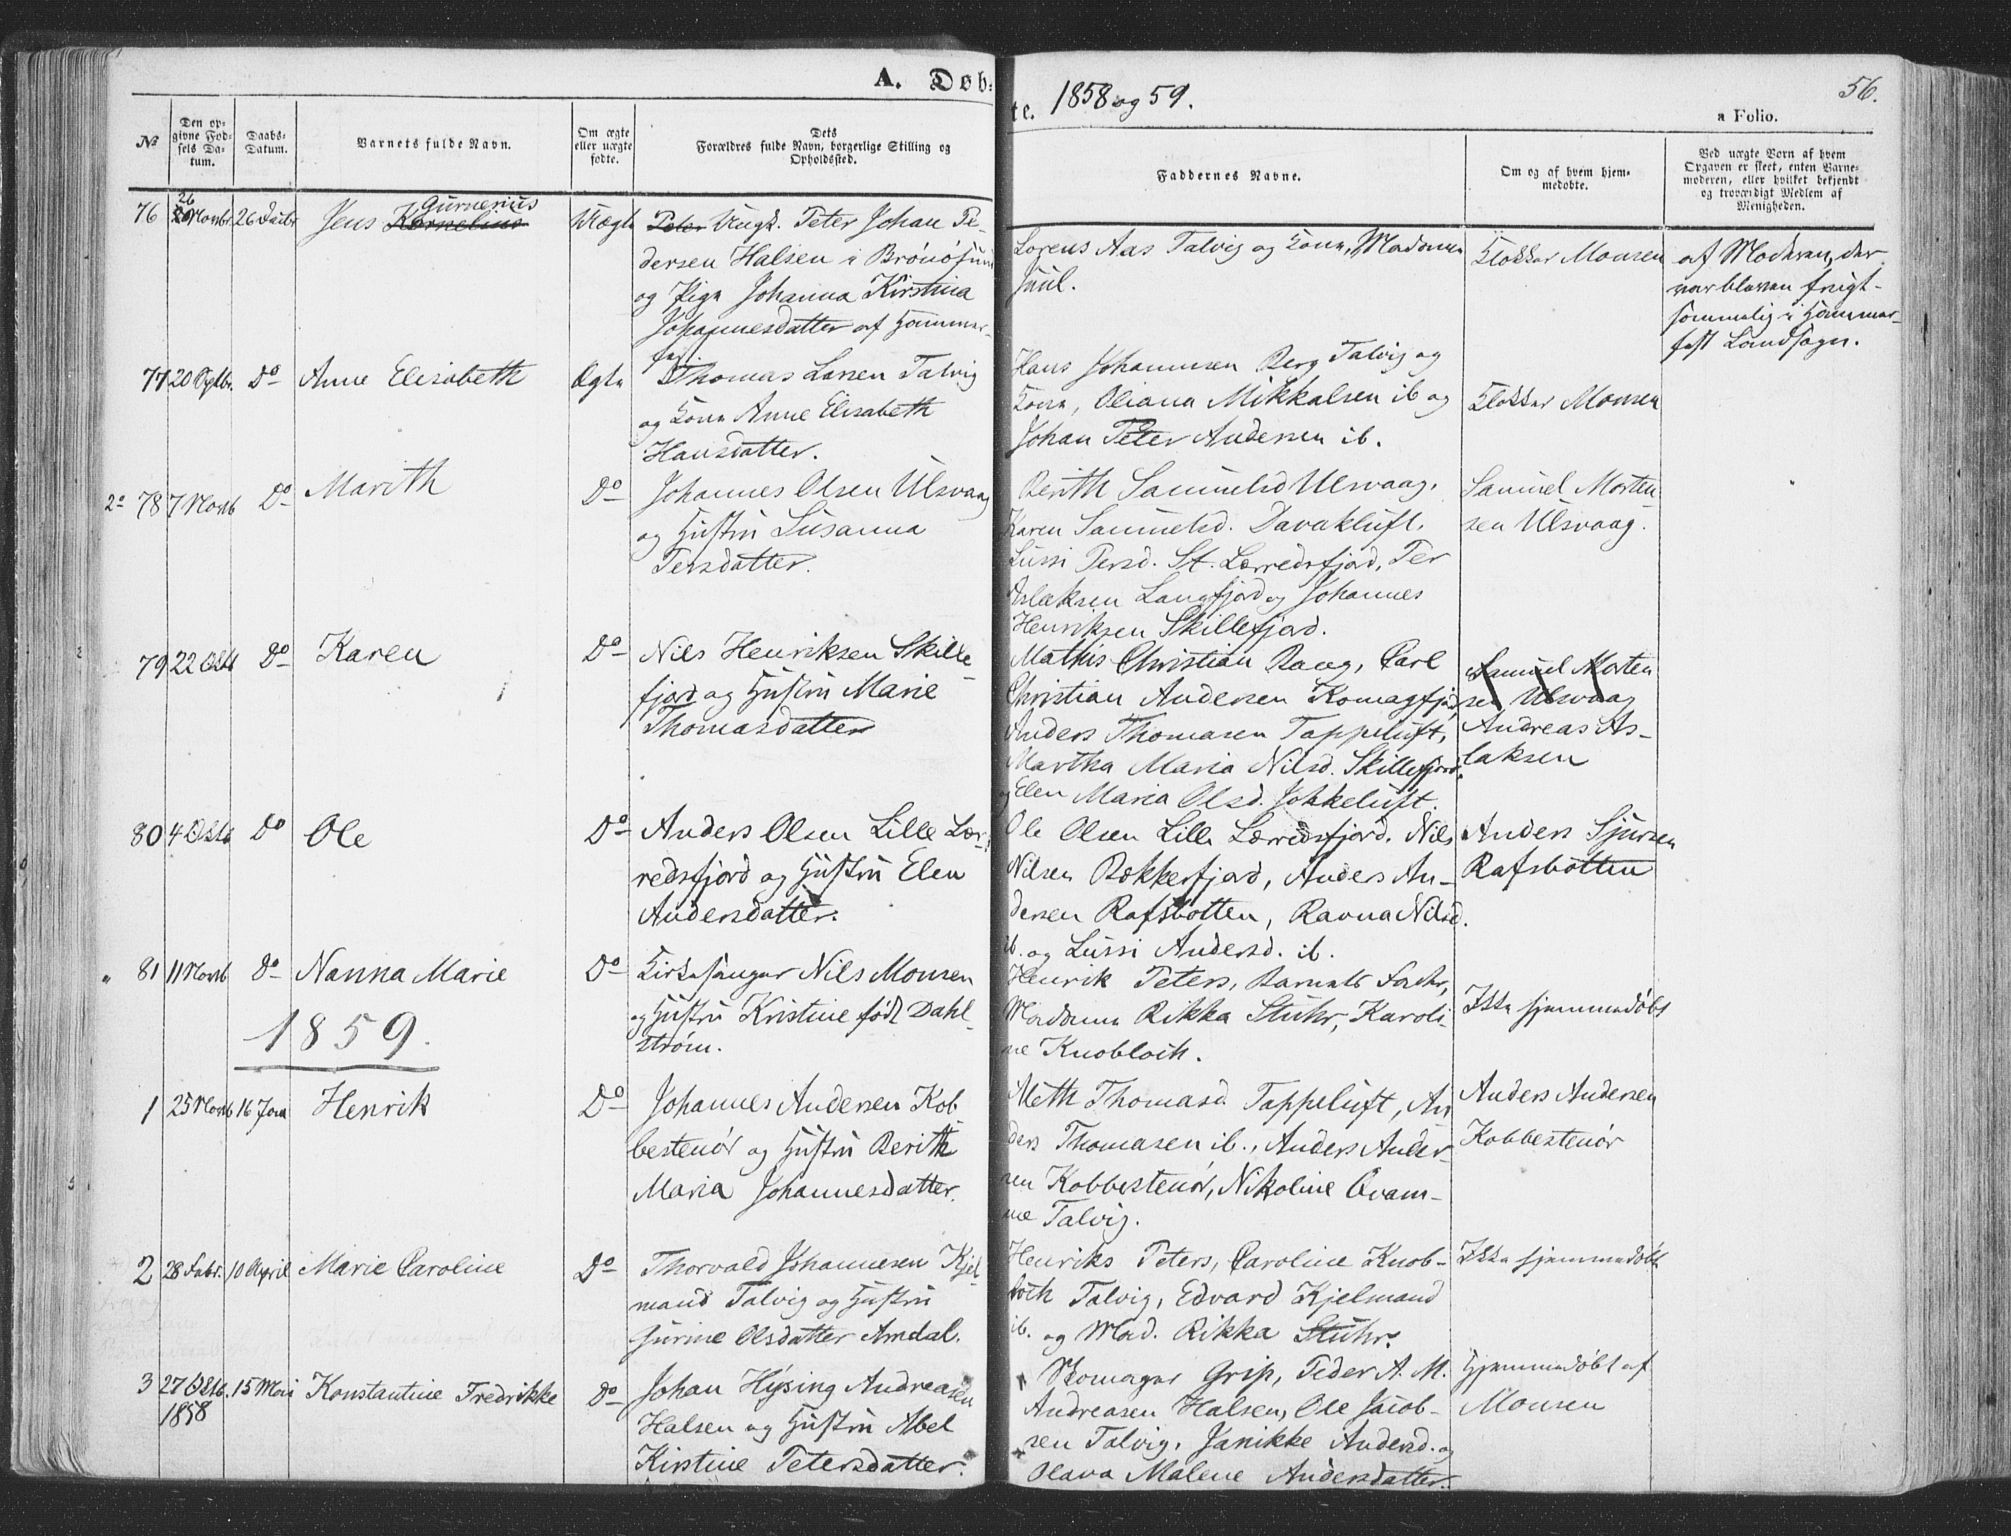 A. Døb:
te. 1858 og 59.
56.
a Folio.
No
Den op-
givne Fød-
sels Da-
tum.
Daabs-
Datum.
Barnets fulde Navn.
Om ægte
eller uægte
fødte.
Dets
Forældres fulde Navn, borgerlige Stilling og
Opholdssted.
Faddernes Navne.
Om og af hvem hjem-
medøbte.
Ved uægte Børn af hvem
Opgaven er skeet, enten Barne-
moderen, eller hvilket bekjendt
og troværdigt Medlem af
Menigheden.
76 26 Novbr 26 Decbr Jens Kornelius Gurnerius Uægte
Peter Ungk. Peter Johan Pe-
dersen Halsen i Brønøsund
og Pige Johanna Kirstina
Johannesdatter af Hammer-
fest.
Lorens Aas Talvig og Kone, Madame
Juul.
Klokker Monsen
af Moderen, der
var bleven frugt-
sommelig i Hammer-
fest Landsogn.
77 20 Do Anne Elisabeth Ægte
Thomas Larsen Talvig
og Kone Anne Elisabeth
Hansdatter.
Hans Johannesen Berg Talvig og
Kone, Oliana Mikkalsen ib og
Johan Peter Andersen ib.
Klokker Monsen
2o 78 7 Novb Do Marith Do
Johannes Olsen Ulsvaag
og Hustru Susanna
Persdatter.
Berith Samuelsd Ulsvaag,
Karen Samuelsd. Davakluft,
Lussi Persd. St. Lerredsfjord, Per
Aslaksen Langfjord og Johannes
Henriksen Skillefjord.
Samuel Morten
sen Ulsvaag.
79 22 Oktb Do Karen Do
Nils Henriksen Skille-
fjord og Hustru Marie
Thomasdatter
Mathis Christian Bang, Carl
Christian Andersen Komagfjord,
Anders Thomasen Tappeluft,
Martha Maria Nilsd. Skillefjord
og Elen Maria Olsd. Jokkeluft.
Samuel Morten
sen Ulsvaag
Andreas As-
laksen
80 4 Oktb Do Ole Do
Anders Olsen Lille Ler-
redsfjord og Hustru Elen
Andersdatter.
Ole Olsen Lille Lerredsfjord, Nils
Nilsen Rokkefjord, Anders An-
dersen Rafsbotten, Ravna Nilsd.
ib. og Lussi Andersd. ib.
Anders Sjursen
Rafsbotten
" 81 11 Novb Do Nanna Marie Do
Kirkesanger Nils Monsen
og Hustru Kristine født Dahl-
strøm.
Henrik Peters, Barnets Fader,
Madame Rikka Stuhr, Karoli-
ne Knobloch.
Ikke hjemmedøbt
1859.
1 25 Novb 16 Jan Henrik Do
Johannes Andersen Kob
bestenør og Hustru Berith
Maria Johannesdatter.
Meth Thomasd Tappeluft, An
ders Thomasen ib., Anders Ander-
sen Kobbestenør, Nikoline Qvam-
me Talvig.
Anders Andersen
Kobbestenør
2 28 Febr. 10 April Marie Caroline Do
Thorvald Johannesen Kjel-
mand Talvig og Hustru
Jurine Olsdatter Amdal.
Henriks Peters, Caroline Knob-
loch Talvig, Edvard Kjelmand
ib. og Mad. Rikka Stuhr.
Ikke hjemmedøbt
3 27 Oktb. 15 Mai Konstantine Fredrikke Do
1858
Johan Hysing Andreasen
Halsen og Hustru Abel
Kirstine Petersdatter.
Skomager Grip, Peder A. M.
Andreasen Halsen, Ole Jacob-
sen Talvig, Janikke Andersd. og
Olava Malene Andersdatter.
Hjemmedøbt af
Monsen